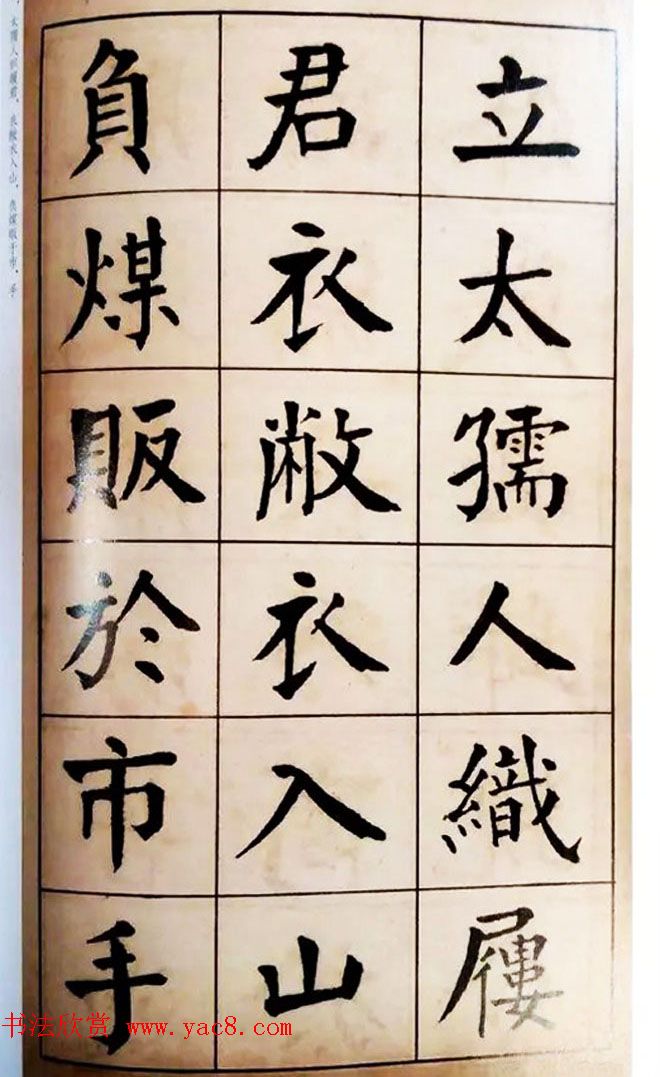 立太孺人織屨
君衣敝衣入山
負煤販於市手
太孺人织屦君，衣敝衣入山，负煤贩于市，手
书法欣赏 www.yac8.com